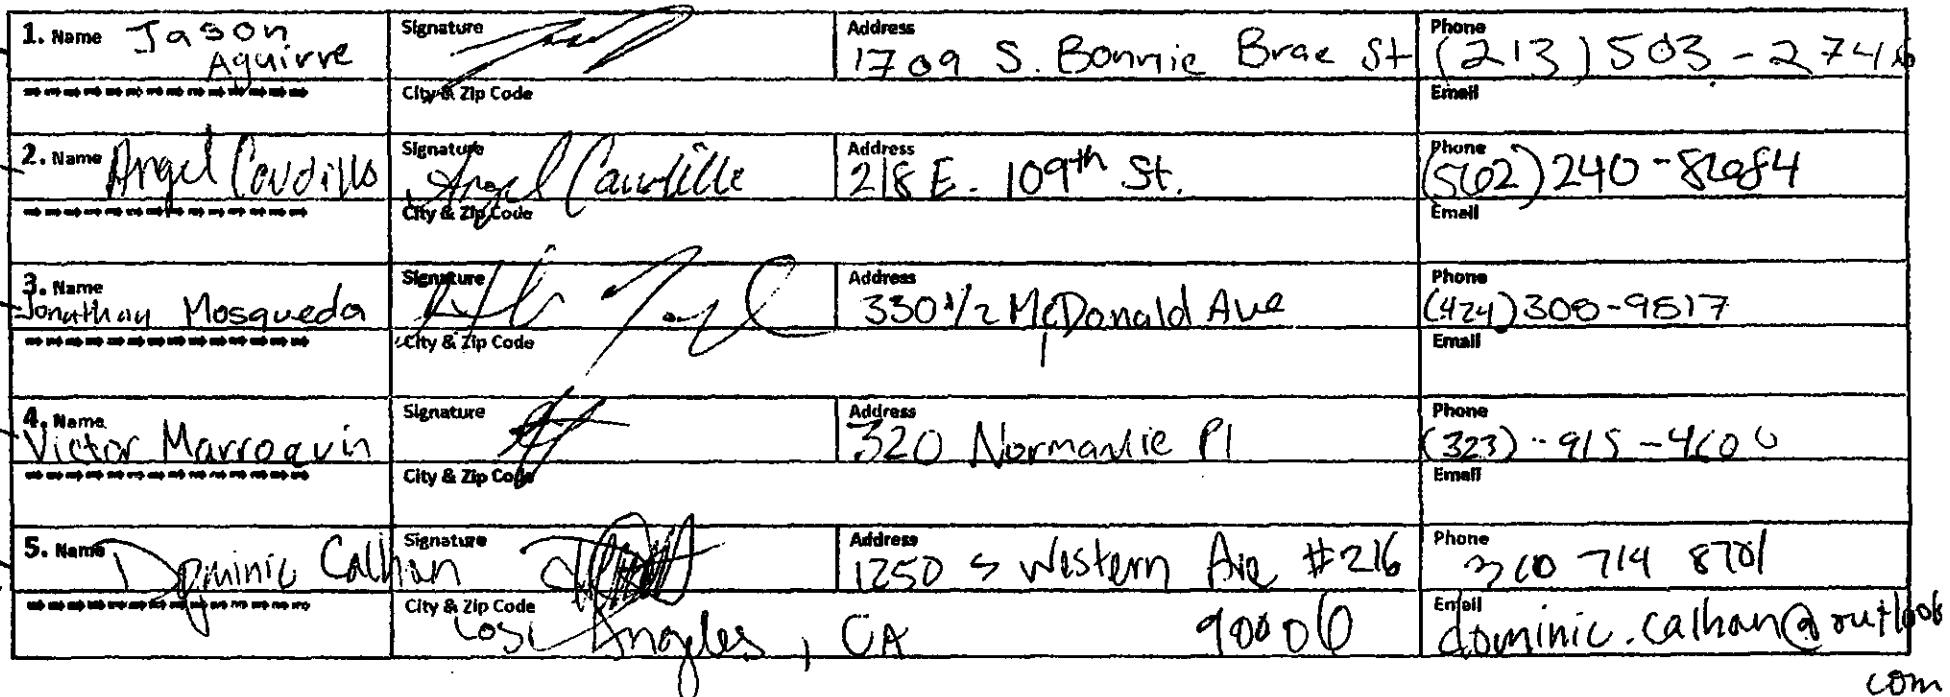 1. Name Jason Aguirre Signature Address 1709 S. Bonnie Brae St Phone (213) 503-2746
City & Zip Code Email
2. Name Angel Caudillo Signature Angel Caudillo Address 218 E. 109th St. Phone (562) 240-8684
City & Zip Code Email
3. Name Jonathan Mosqueda Signature Address 330 1/2 McDonald Ave Phone (424) 308-9517
City & Zip Code Email
4. Name Victor Marroquin Signature Address 320 Normandie Pl Phone (323)-915-4600
City & Zip Code Email
5. Name Dominic Calhan Signature Address 1250 S Western Ave #216 Phone 360 714 8701
City & Zip Code Los Angeles, CA 90006 Email dominic.calhan@outlook
com